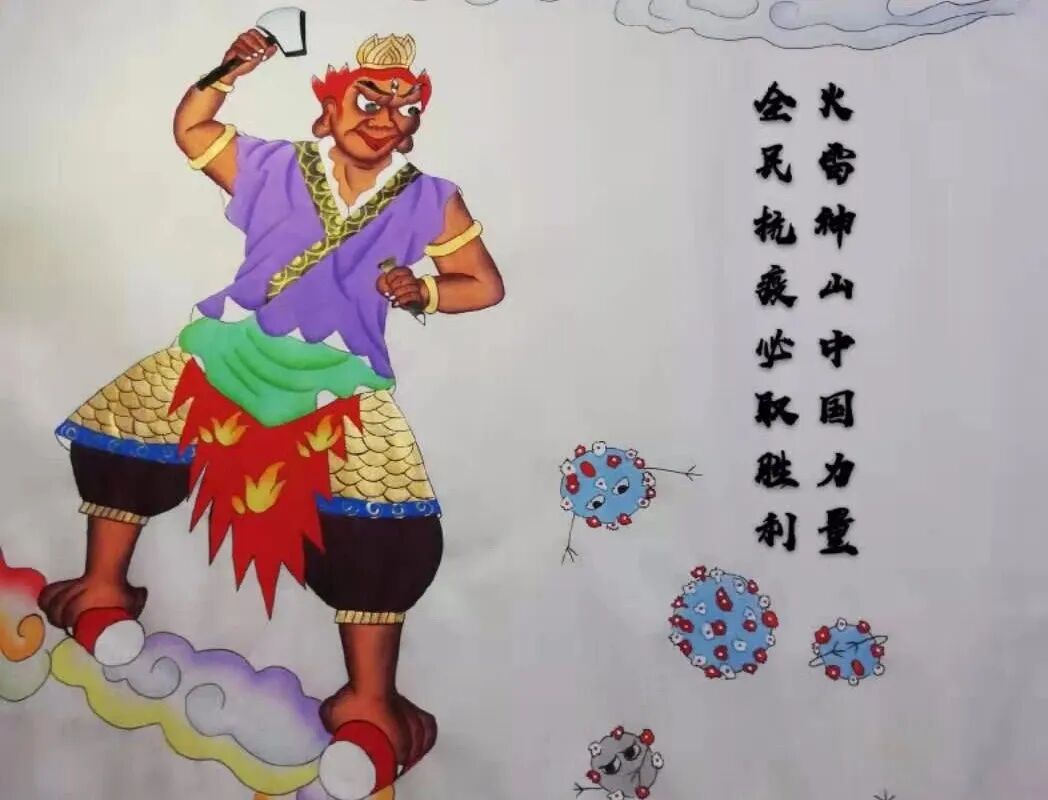 火雷神山中国力量
全民抗疫必取胜利